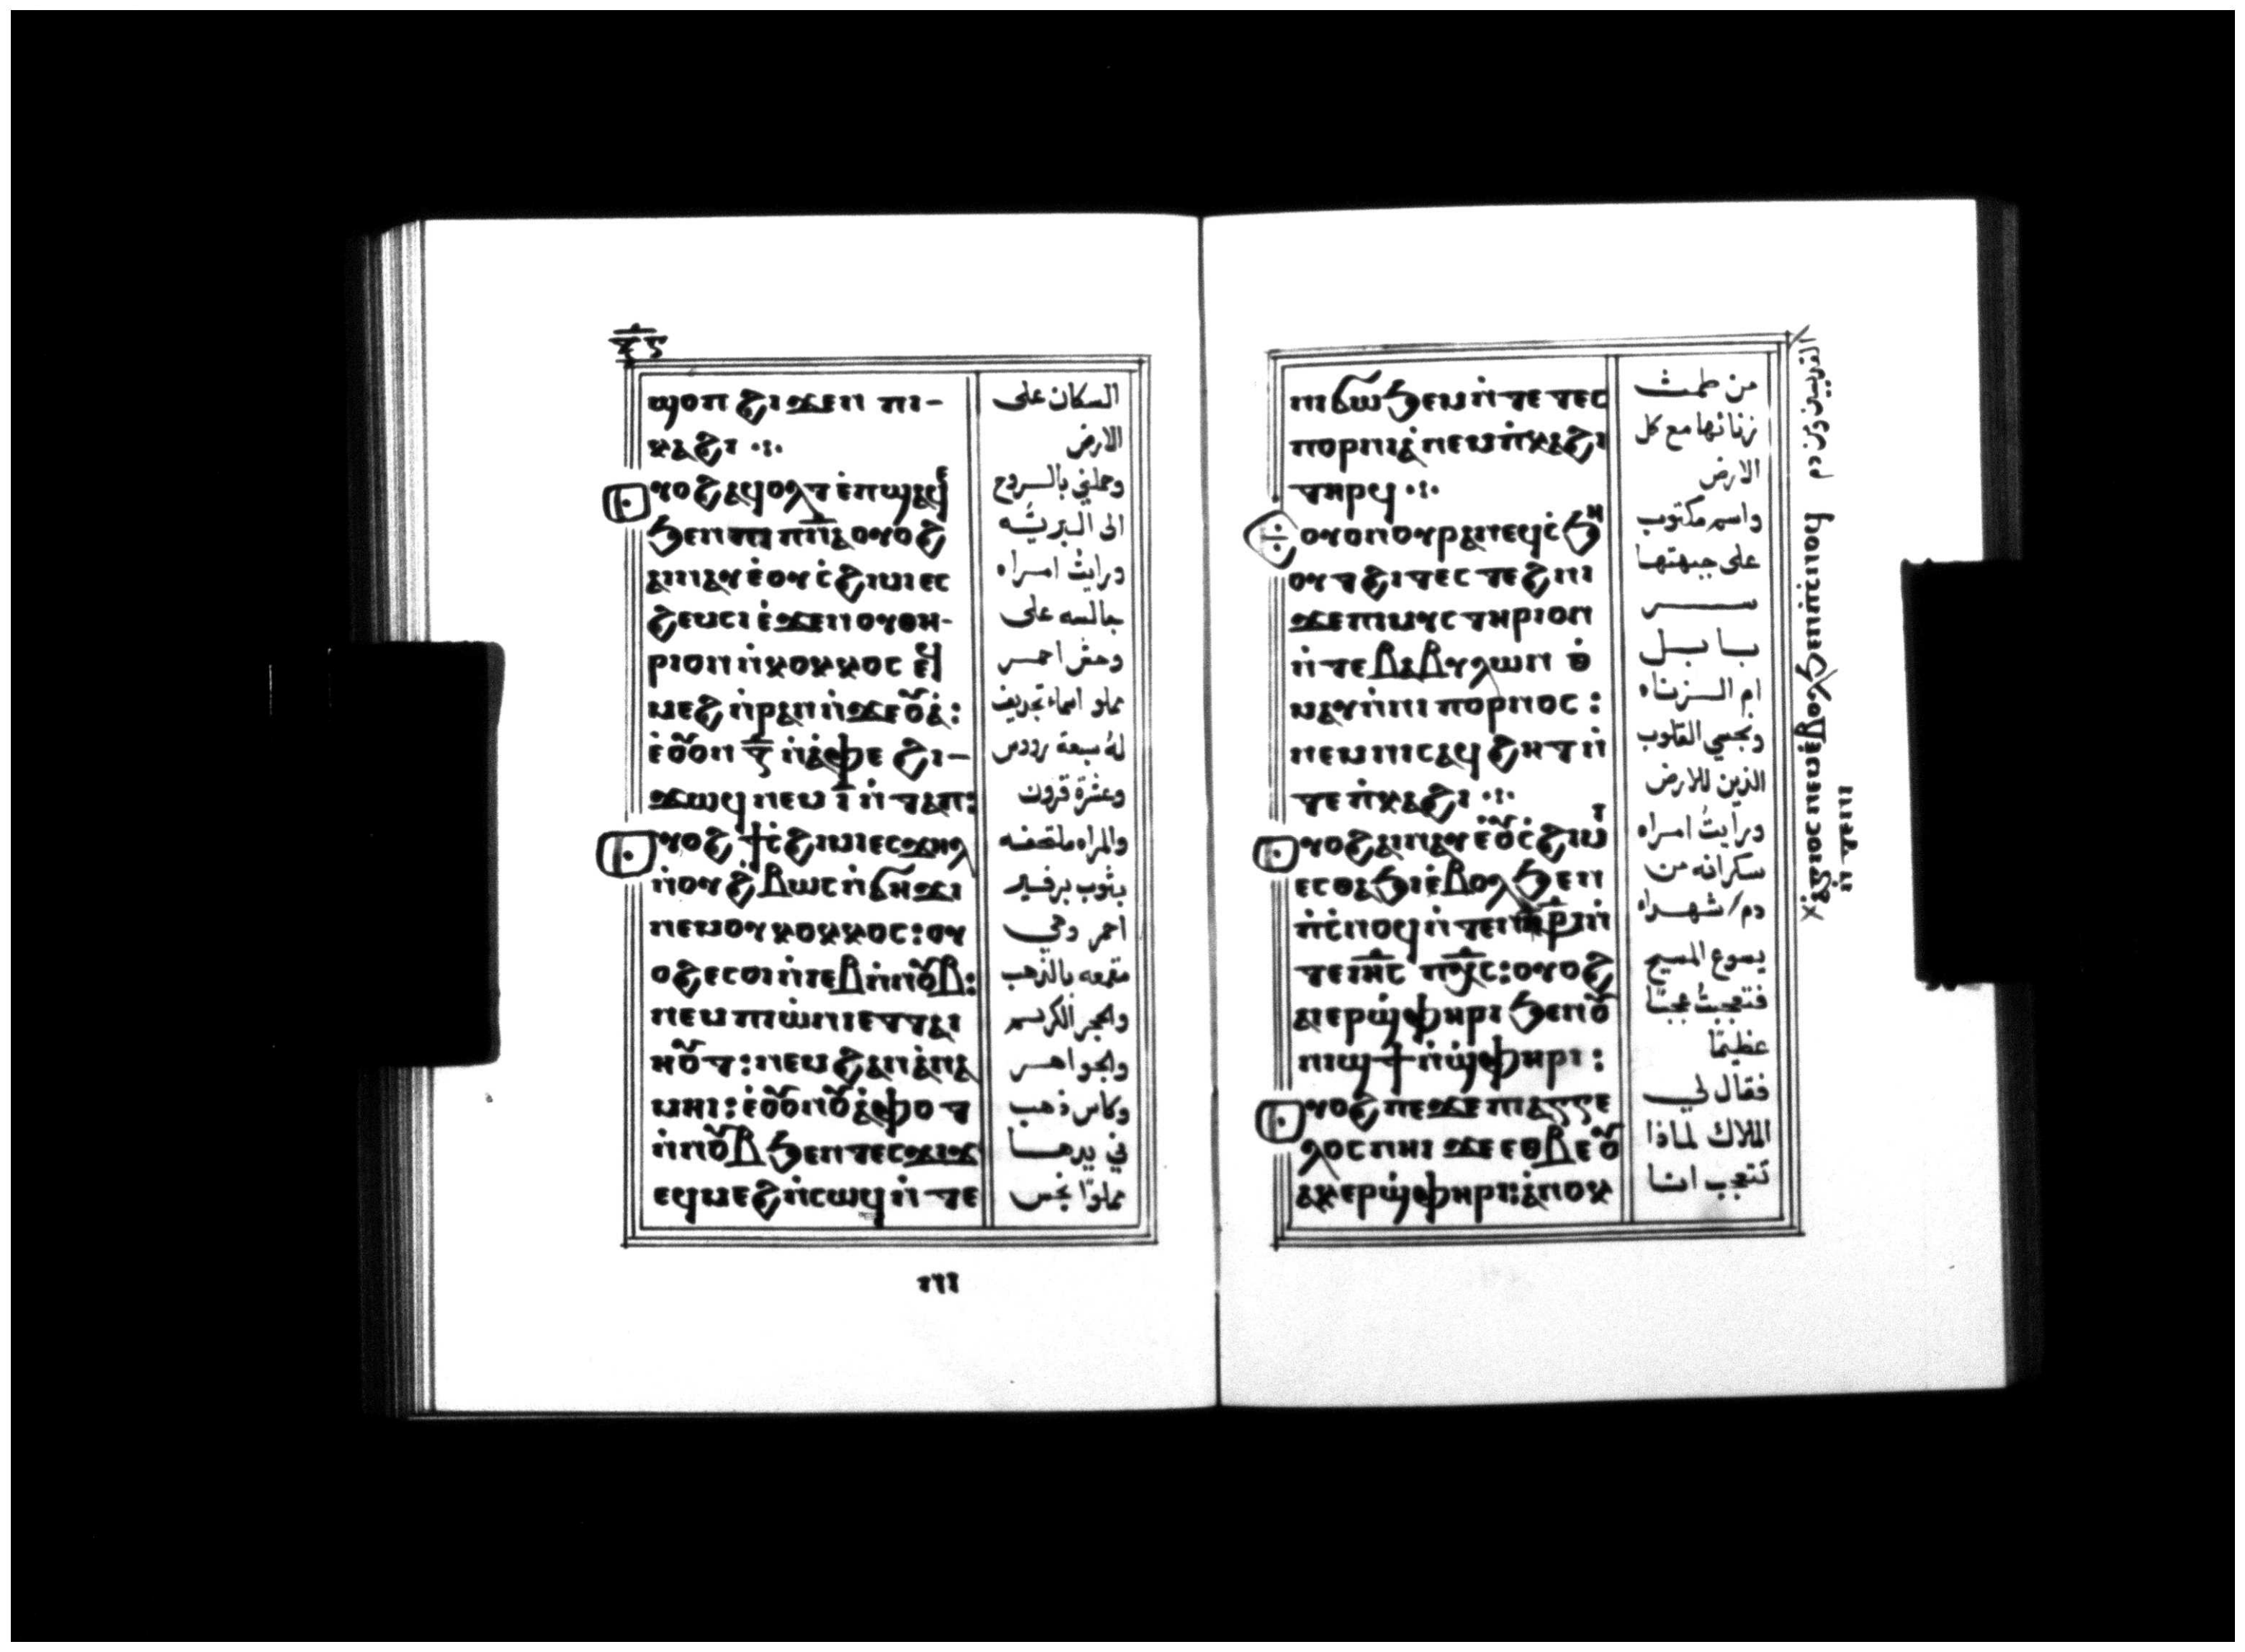 ϣⲟⲡ ϩⲓϫⲉⲛ ⲡⲓ-
ⲕⲁϩⲓ ·:·
ⲟⲩⲟϩ ⲁϥⲟⲗⲧ ⲉ̀ⲡϣⲁϥⲉ
ϧⲉⲛ ⲡⲓⲡ̅ⲛ̅ⲁ̅ ⲟⲩⲟϩ
ⲁⲓⲛⲁⲩ ⲉ̀ⲟⲩⲥ̀ϩⲓⲙⲓ ⲉⲥ
ϩⲉⲙⲥⲓ ⲉ̀ϫⲉⲛ ⲟⲩⲑⲏ-
ⲣⲓⲟⲛ ⲛ̀ⲕⲟⲕⲕⲟⲥ ⲉϥ
ⲙⲉϩ ⲛ̀ⲣⲁⲛ ⲛ̀ϫⲉⲟⲩⲁ̀:
ⲉ̀ⲟⲩⲟⲛ ⲍ̅ ⲛ̀ⲁ̀ⲫⲉ ϩⲓ-
ϫⲱϥ ⲛⲉⲙ ⲓ̅ ⲛ̀ⲧⲁⲡ:
ⲟⲩⲟϩ ϯⲥ̀ϩⲓⲙⲓ ⲉⲥϫⲏⲗ
ⲛ̀ⲟⲩϩ̀ⲃⲱⲥ ⲛ̀ϭⲏϫⲓ
ⲛⲉⲙ ⲟⲩⲕⲟⲕⲕⲟⲥ: ⲟⲩ
ⲟϩ ⲉⲥⲟⲓ ⲛ̀ⲓⲉⲃ ⲛ̀ⲛⲟⲩⲃ:
ⲛⲉⲙ ⲡⲓⲱ̀ⲛⲓ ⲉⲧⲧⲁⲓ
ⲏⲟⲩⲧ: ⲛⲉⲙ ϩⲁⲛⲁ̀ⲛⲁ
ⲙⲏⲓ: ⲉ̀ⲟⲩⲟⲛ ⲟⲩⲁ̀ⲫⲟⲧ
ⲛ̀ⲛⲟⲩⲃ ϧⲉⲛ ⲧⲉⲥϫⲓϫ
ⲉϥⲙⲉϩ ⲛ̀ⲥⲱϥ ⲛ̀ⲧⲉ
السكان على
الارض
وحملني بالروح
الى البريّه
ورايت امراه
جالسه على
وحش احمر
مملو اسماء تجديف
لهُ سبعة رووس
وعشرة قرون
والمراه ملتحفه
بثوب برفير
احمر
مقمعه بالذهب
والحجر الكريم
والجواهر
وكاس ذهب
في يدها
مملوّا نجس
ⲡⲓϭⲱϧⲉⲙ ⲛ̀ⲧⲉ ⲧⲉⲥ
ⲡⲟⲣⲛⲓⲁ̀ ⲛⲉⲙ ⲛ̀ⲕⲁϩⲓ
ⲧⲏⲣϥ ·:·
ⲟⲩⲟⲛ ⲟⲩⲣⲁⲛ ⲉϥⲥ̀ϧⲏ
ⲟⲩⲧ ϩⲓ ⲧⲉⲥⲧⲉϩⲛⲓ
ϫⲉ ⲡⲙⲩⲥⲧⲏⲣⲓⲟⲛ
ⲛ̀ⲧⲉ ⲃⲁⲃⲩⲗⲱⲛ ⲑ̀
ⲙⲁⲩ ⲛ̀ⲛⲓⲡⲟⲣⲛⲟⲥ:
ⲛⲉⲙ ⲡⲓⲥⲁϥ ϩⲏⲧ ⲛ̀
ⲧⲉ ⲡ̀ⲕⲁϩⲓ ·:·
ⲟⲩⲟϩ ⲁⲓⲛⲁⲩ ⲉ̀ⲟⲩⲥ̀ϩⲓⲙⲓ
ⲉⲥⲑⲁϧⲓ ⲉ̀ⲃⲟⲗ ϧⲉⲛ
ⲡ̀ⲥ̀ⲛⲟϥ ⲛ̀ⲧⲉ ⲛⲓⲙⲁⲣⲧⲩⲣⲟⲥ ⲛ̀
ⲧⲉ ⲓⲏ̅ⲥ̅ ⲡⲭ̅ⲥ̅: ⲟⲩⲟϩ
ⲁⲓⲉⲣϣ̀ⲫⲏⲣⲓ ϧⲉⲛ ⲟⲩ
ⲛⲓϣϯ ⲛ̀ϣ̀ⲫⲏⲣⲓ:
ⲟⲩⲟϩ ⲡⲉϫⲉ ⲡⲓⲁⲅⲅⲉ
ⲗⲟⲥ ⲛⲏⲓ ϫⲉ ⲉⲑⲃⲉ ⲟⲩ
ⲁⲕⲉⲣϣ̀ⲫⲏⲣⲓ: ⲁ̀ⲛⲟⲕ
من طمث
زنائها مع كل
الارض
واسم مكتوب
على جبهتها
سر
بابل
ام الزناه
ونجسي القلوب
الذين للارض
ورايتُ امراه
سكرانه من
دم / شهداه
يسوع المسيح
فتعجبتُ عجبًا
عظيمًا
فقال لي
الملاك لماذا
تتعجب انا
القديسين ومن دم